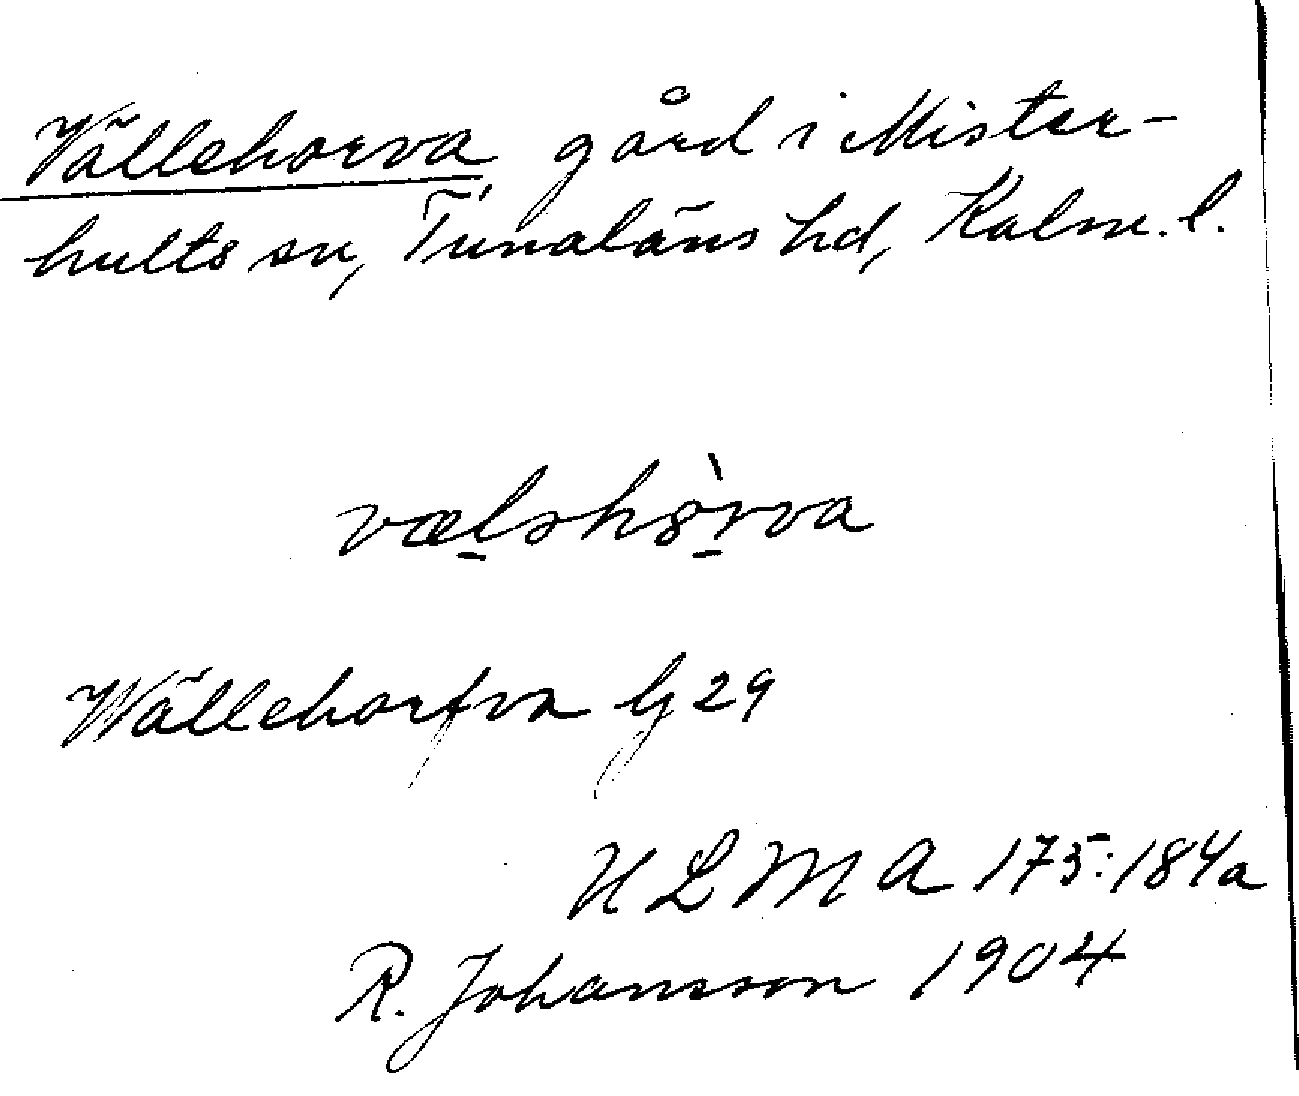 Vällehorva gård i Mister-
hults sn, Tunaläns hd, Kalm. l.
vælshòrva
Wällehorfva Gj 29
ULMA 175:184a
R. Johansson 1904